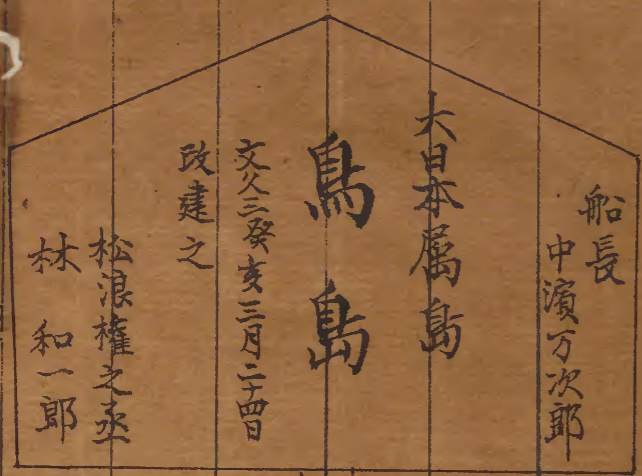 船長
中濱万次郎
大日本属島
鳥島
文久三癸亥三月二十四日
改建之
松浪権之丞
林和一郎